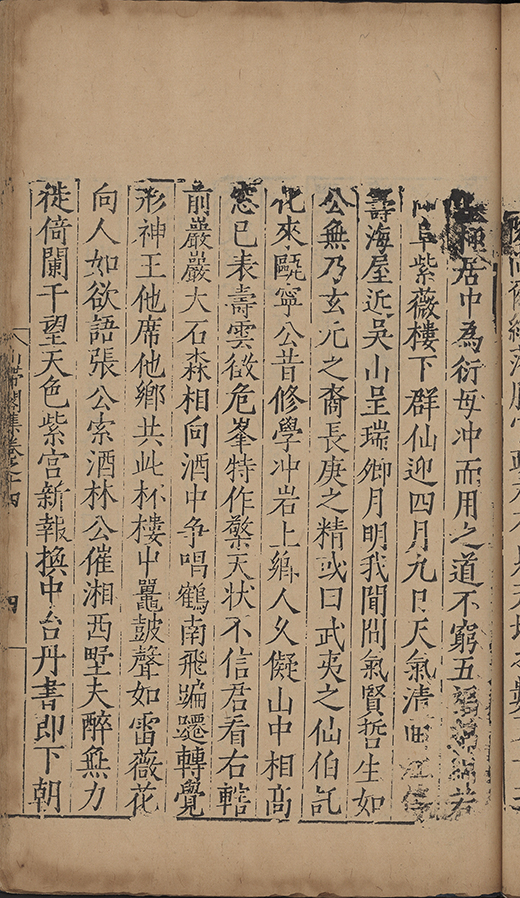 極居中為衍母冲而用之道不窮五
阜紫薇樓下群仙迎四月九日天氣清
壽海屋近吳山呈瑞卿月明我聞間氣賢哲生如
公無乃玄元之裔長庚之精或曰武夷之仙伯託
化來甌寧公昔修學冲岩上鄉人久儗山中相高
窓已表壽雲徵危峯特作擎天狀不信君看右轄
前巖巖大石森相向酒中争唱鶴南飛蹁躚轉覺
形神王他席他鄉共此杯樓中鼉皷聲如雷薇花
向人如欲語張公索酒林公催湘西墅夫醉無力
徙倚闌干望天色紫宮新報換中台丹書即下朝
山帶閣集卷之十四
四